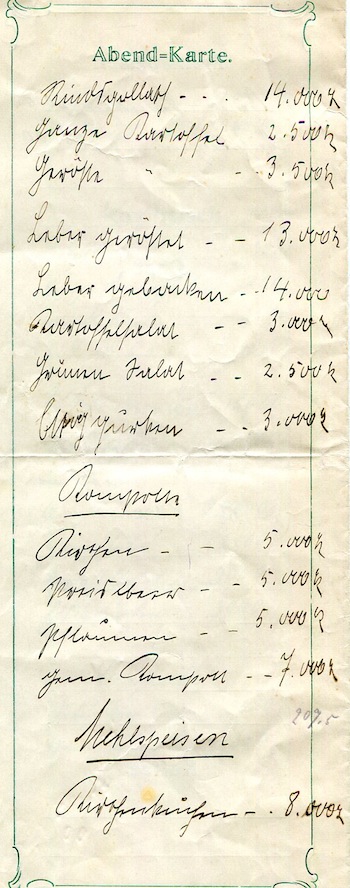 Abend=Karte.
Rindsgollasch - - . 14.000K
Ganze Kartoffel 2.500K
Geröste " - 3.500K
Leber geröstet - - 13.000K
Leber gebacken - . 14.000
Kartoffelsalat - - 3.000K
Grünen Salat - - 2.500K
Essiggurken - - 3.000K
Kompotte
Kirschen - - 5.000K
Preislbeer - - 5.000K
Pflaumen - - 5.000K
gem. Kompott - - 7.000K
Mehlspeisen
Kirschenkuchen - . 8.000K